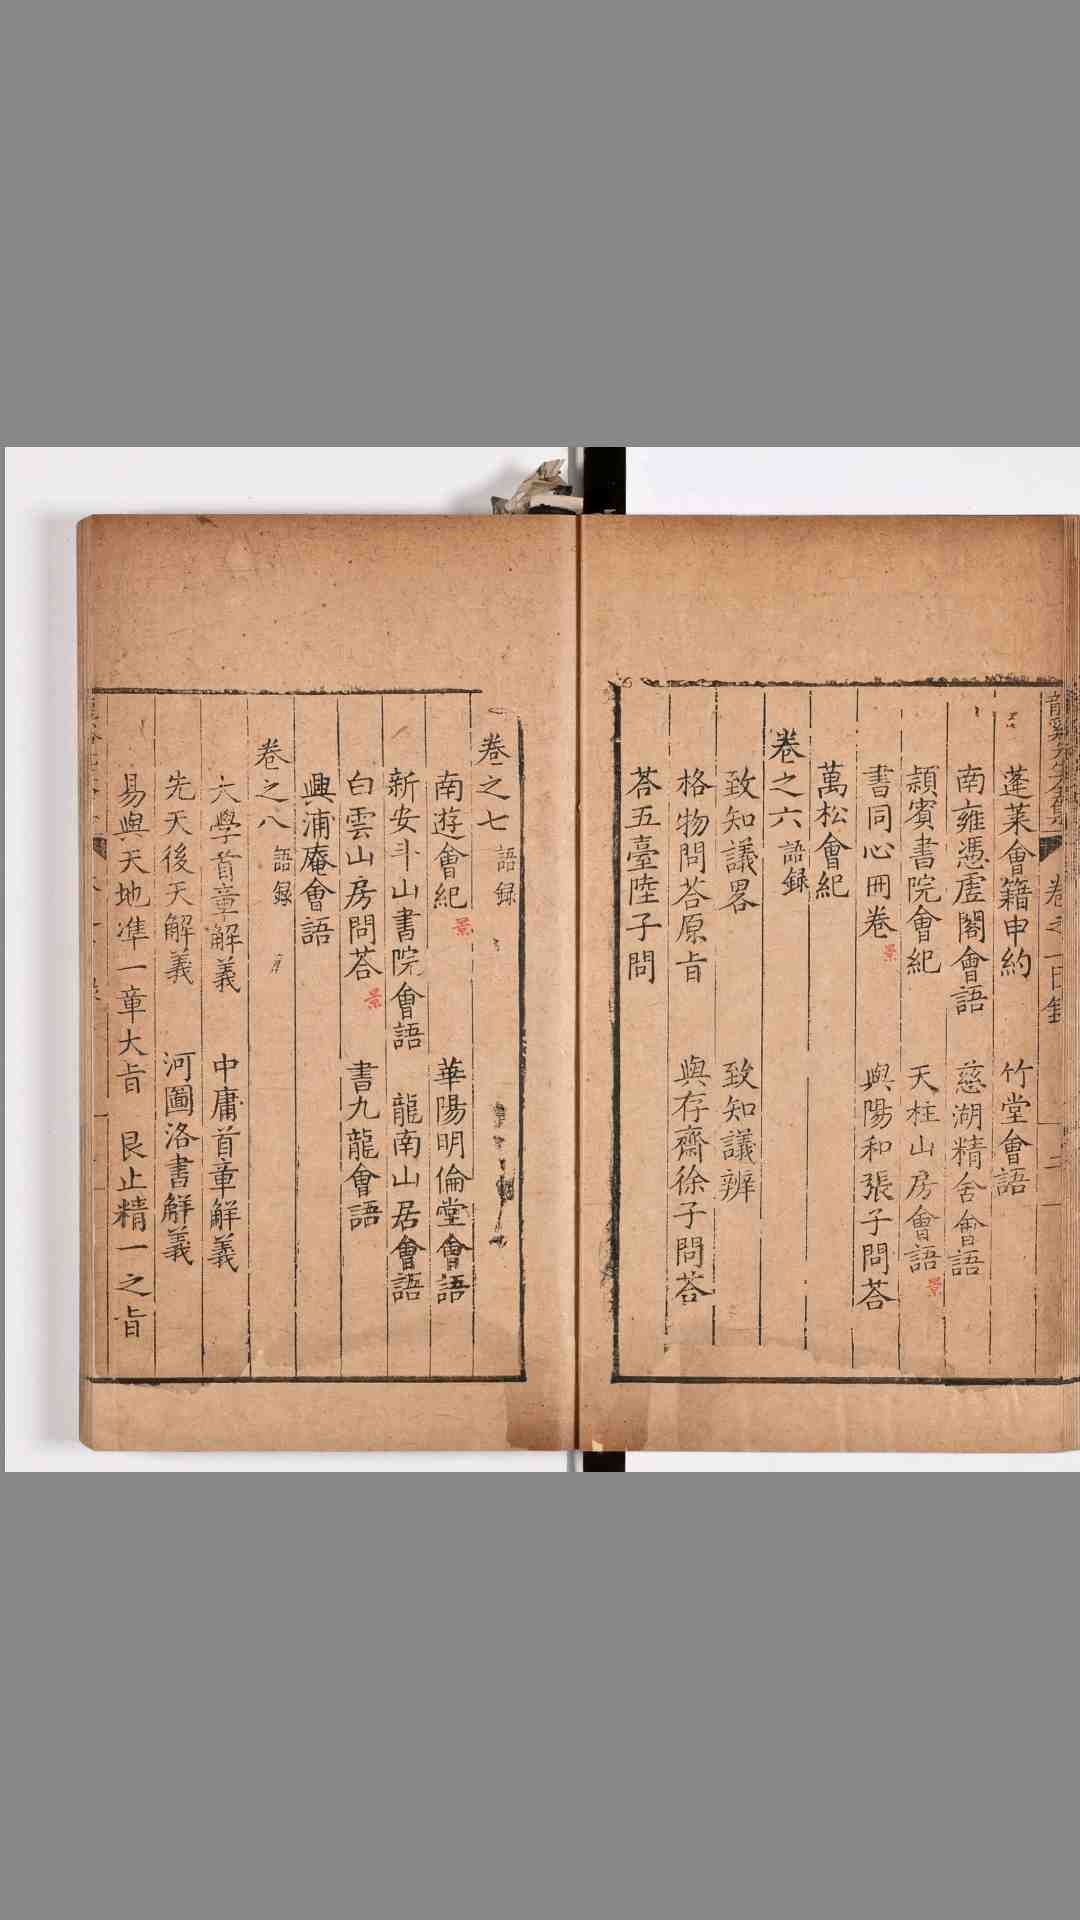 龍谿先生全集 卷之一目錄 二
蓬萊會籍申約 竹堂會語
南雍憑虗閣會語 慈湖精舍會語
頴賓書院會紀 天柱山房會語 景
書同心冊卷 景 與陽和張子問荅
萬松會紀
卷之六 語録
致知議畧 致知議辨
格物問荅原旨 與存齋徐子問荅
荅五臺陸子問
卷之七 語録
南遊會紀 景 華陽明倫堂會語
新安斗山書院會語 龍南山居會語
白雲山房問荅 景 書九龍會語
興浦庵會語
卷之八 語録
大學首章解義 中庸首章解義
先天後天解義 河圖洛書解義
易與天地準一章大旨 艮止精一之旨